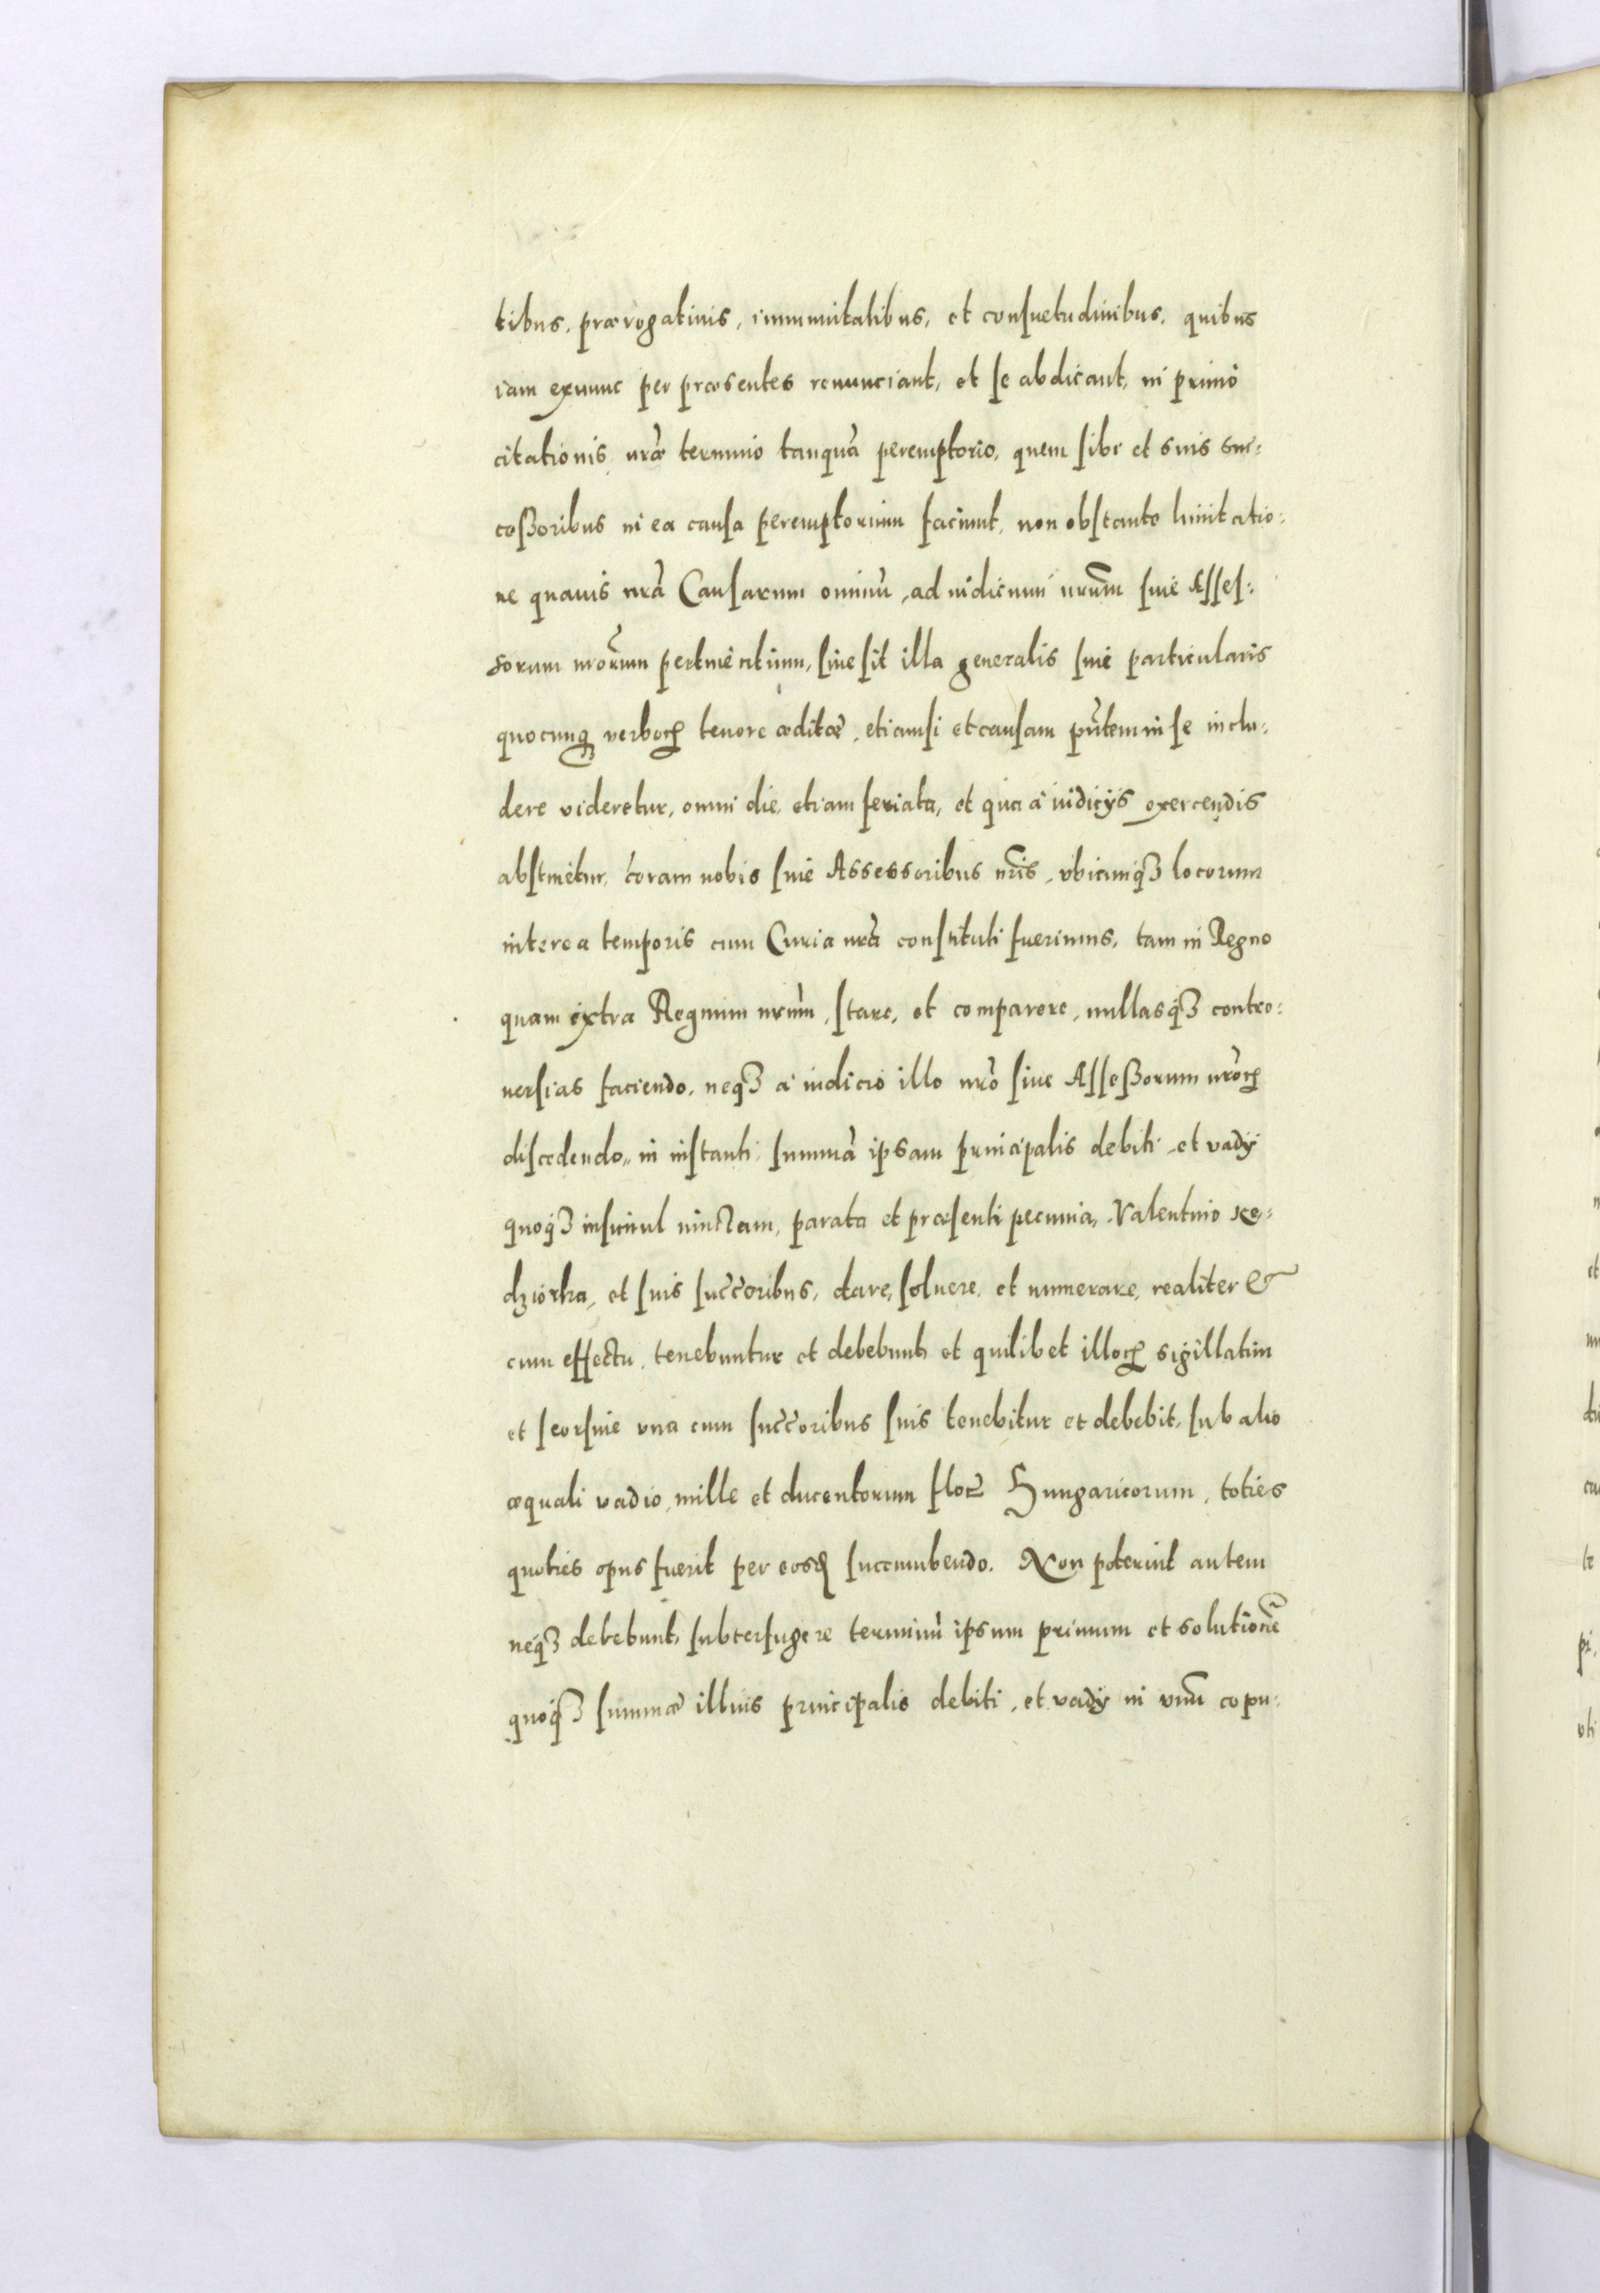 tibus, prærogatiuis, immunitatibus, et consuetudinibus, quibus
iam exnunc per præsentes renunciant, et se abdicant, in primo
citationis nr̃æ termino tanquã peremptorio, quem sibi et suis suc-
ceßoribus in ea causa peremptorium faciunt, non obstante limitatio-
ne quauis nr̃a Causarum omniũ, ad iudicium nr̃um siue Asses-
sorum nr̃orum pertinentium, siue sit illa generalis siue particularis
quocunq verboꝝ tenore æditæ, etiamsi et causam pñtem in se inclu-
dere videretur, omni die, etiam feriata, et qua a iudicijs exercendis
abstinetur, coram nobis siue Assessoribus nr̃is, vbicunqꝫ locorum
interea temporis cum Curia nr̃a constituti fuerimus, tam in Regno
quam extra Regnum nr̃um, stare, et comparere, nullasqꝫ contro-
uersias faciendo, neqꝫ a iudicio illo nr̃o siue Asseßorum nr̃oꝝ
discedendo, in instanti, summã ipsam principalis debiti, et vadij
quoqꝫ insimul iunctam, parata et præsenti pecunia, Valentino Ke-
dziorka, et suis succ̃oribus, dare, soluere, et numerare, realiter &
cum effectu, tenebuntur et debebunt, et quilibet illoꝝ sigillatim
et seorsiue vna cum succ̃oribus suis tenebitur et debebit, sub alio
æquali vadio, mille et ducentorum floꝝ Hungaricorum, toties
quoties opus fuerit per eosd succumbendo. Non poterint autem
neqꝫ debebunt, subterfugere terminũ ipsum primum et solutionẽ
quoqꝫ summæ illius principalis debiti, et vadij in vnũ copu-